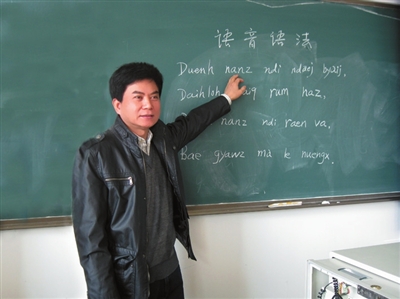 语音语法
Duenh nanz ndi ndaej byaij,
Daihloh rum haz,
nanz ndi raen va,
Bae gyawz ma le nuengx.